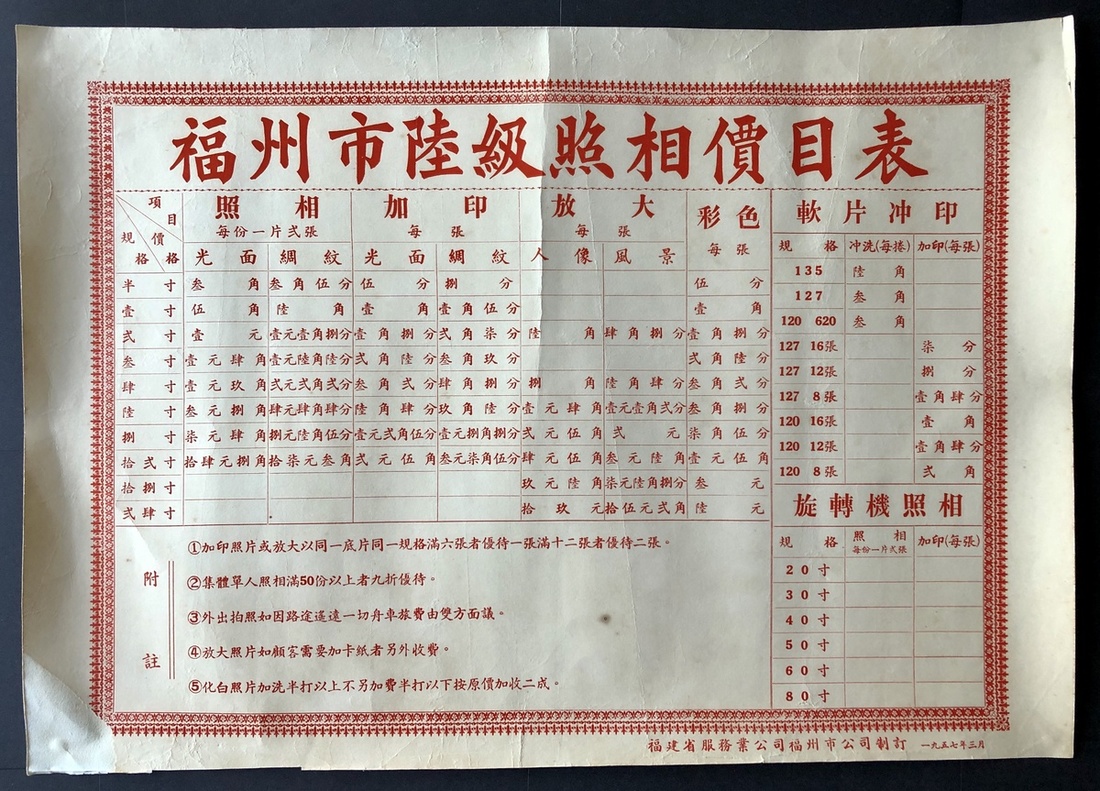 福州市陸級照相價目表
項目 價格 規格 照相 加印 放大 彩色
每份一片弍張 每張 每張 每張
光面 綢紋 光面 綢紋 人像 風景
半寸 叁角 叁角伍分 伍分 捌分 伍分
壹寸 伍角 陸角 壹角 壹角伍分 壹角
弍寸 壹元 壹元壹角捌分 壹角捌分 弍角柒分 陸角 肆角捌分 壹角捌分
叁寸 壹元肆角 壹元陸角陸分 弍角陸分 叁角玖分 弍角陸分
肆寸 壹元玖角 弍元弍角弍分 叁角弍分 肆角捌分 捌角 陸角肆分 叁角弍分
陸寸 叁元捌角 肆元肆角肆分 陸角肆分 玖角陸分 壹元肆角 壹元壹角弍分 叁角捌分
捌寸 柒元肆角 捌元陸角伍分 壹元弍角伍分 壹元捌角捌分 弍元伍角 弍元 柒角伍分
拾弍寸 拾肆元捌角 拾柒元叁角 弍元伍角 叁元柒角伍分 肆元伍角 叁元陸角 壹元伍角
拾捌寸 玖元陸角 柒元陸角捌分 叁元
弍肆寸 拾玖元 拾伍元弍角 陸元
軟片冲印
規格 冲洗(每捲) 加印(每張)
135 陸角
127 叁角
120 620 叁角
127 16張 柒分
127 12張 捌分
127 8張 壹角肆分
120 16張 壹角
120 12張 壹角肆分
120 8張 弍角
旋轉機照相
規格 照相 加印(每張)
每份一片弍張
20寸
30寸
40寸
50寸
60寸
80寸
附註
①加印照片或放大以同一底片同一規格滿六張者優待一張滿十二張者優待二張。
②集體單人照相滿50份以上者九折優待。
③外出拍照如因路途遙遠一切舟車旅費由雙方面議。
④放大照片如顧客需要加卡紙者另外收費。
⑤化白照片加洗半打以上不另加費半打以下按原價加收二成。
福建省服務業公司福州市公司制訂 一九五七年三月